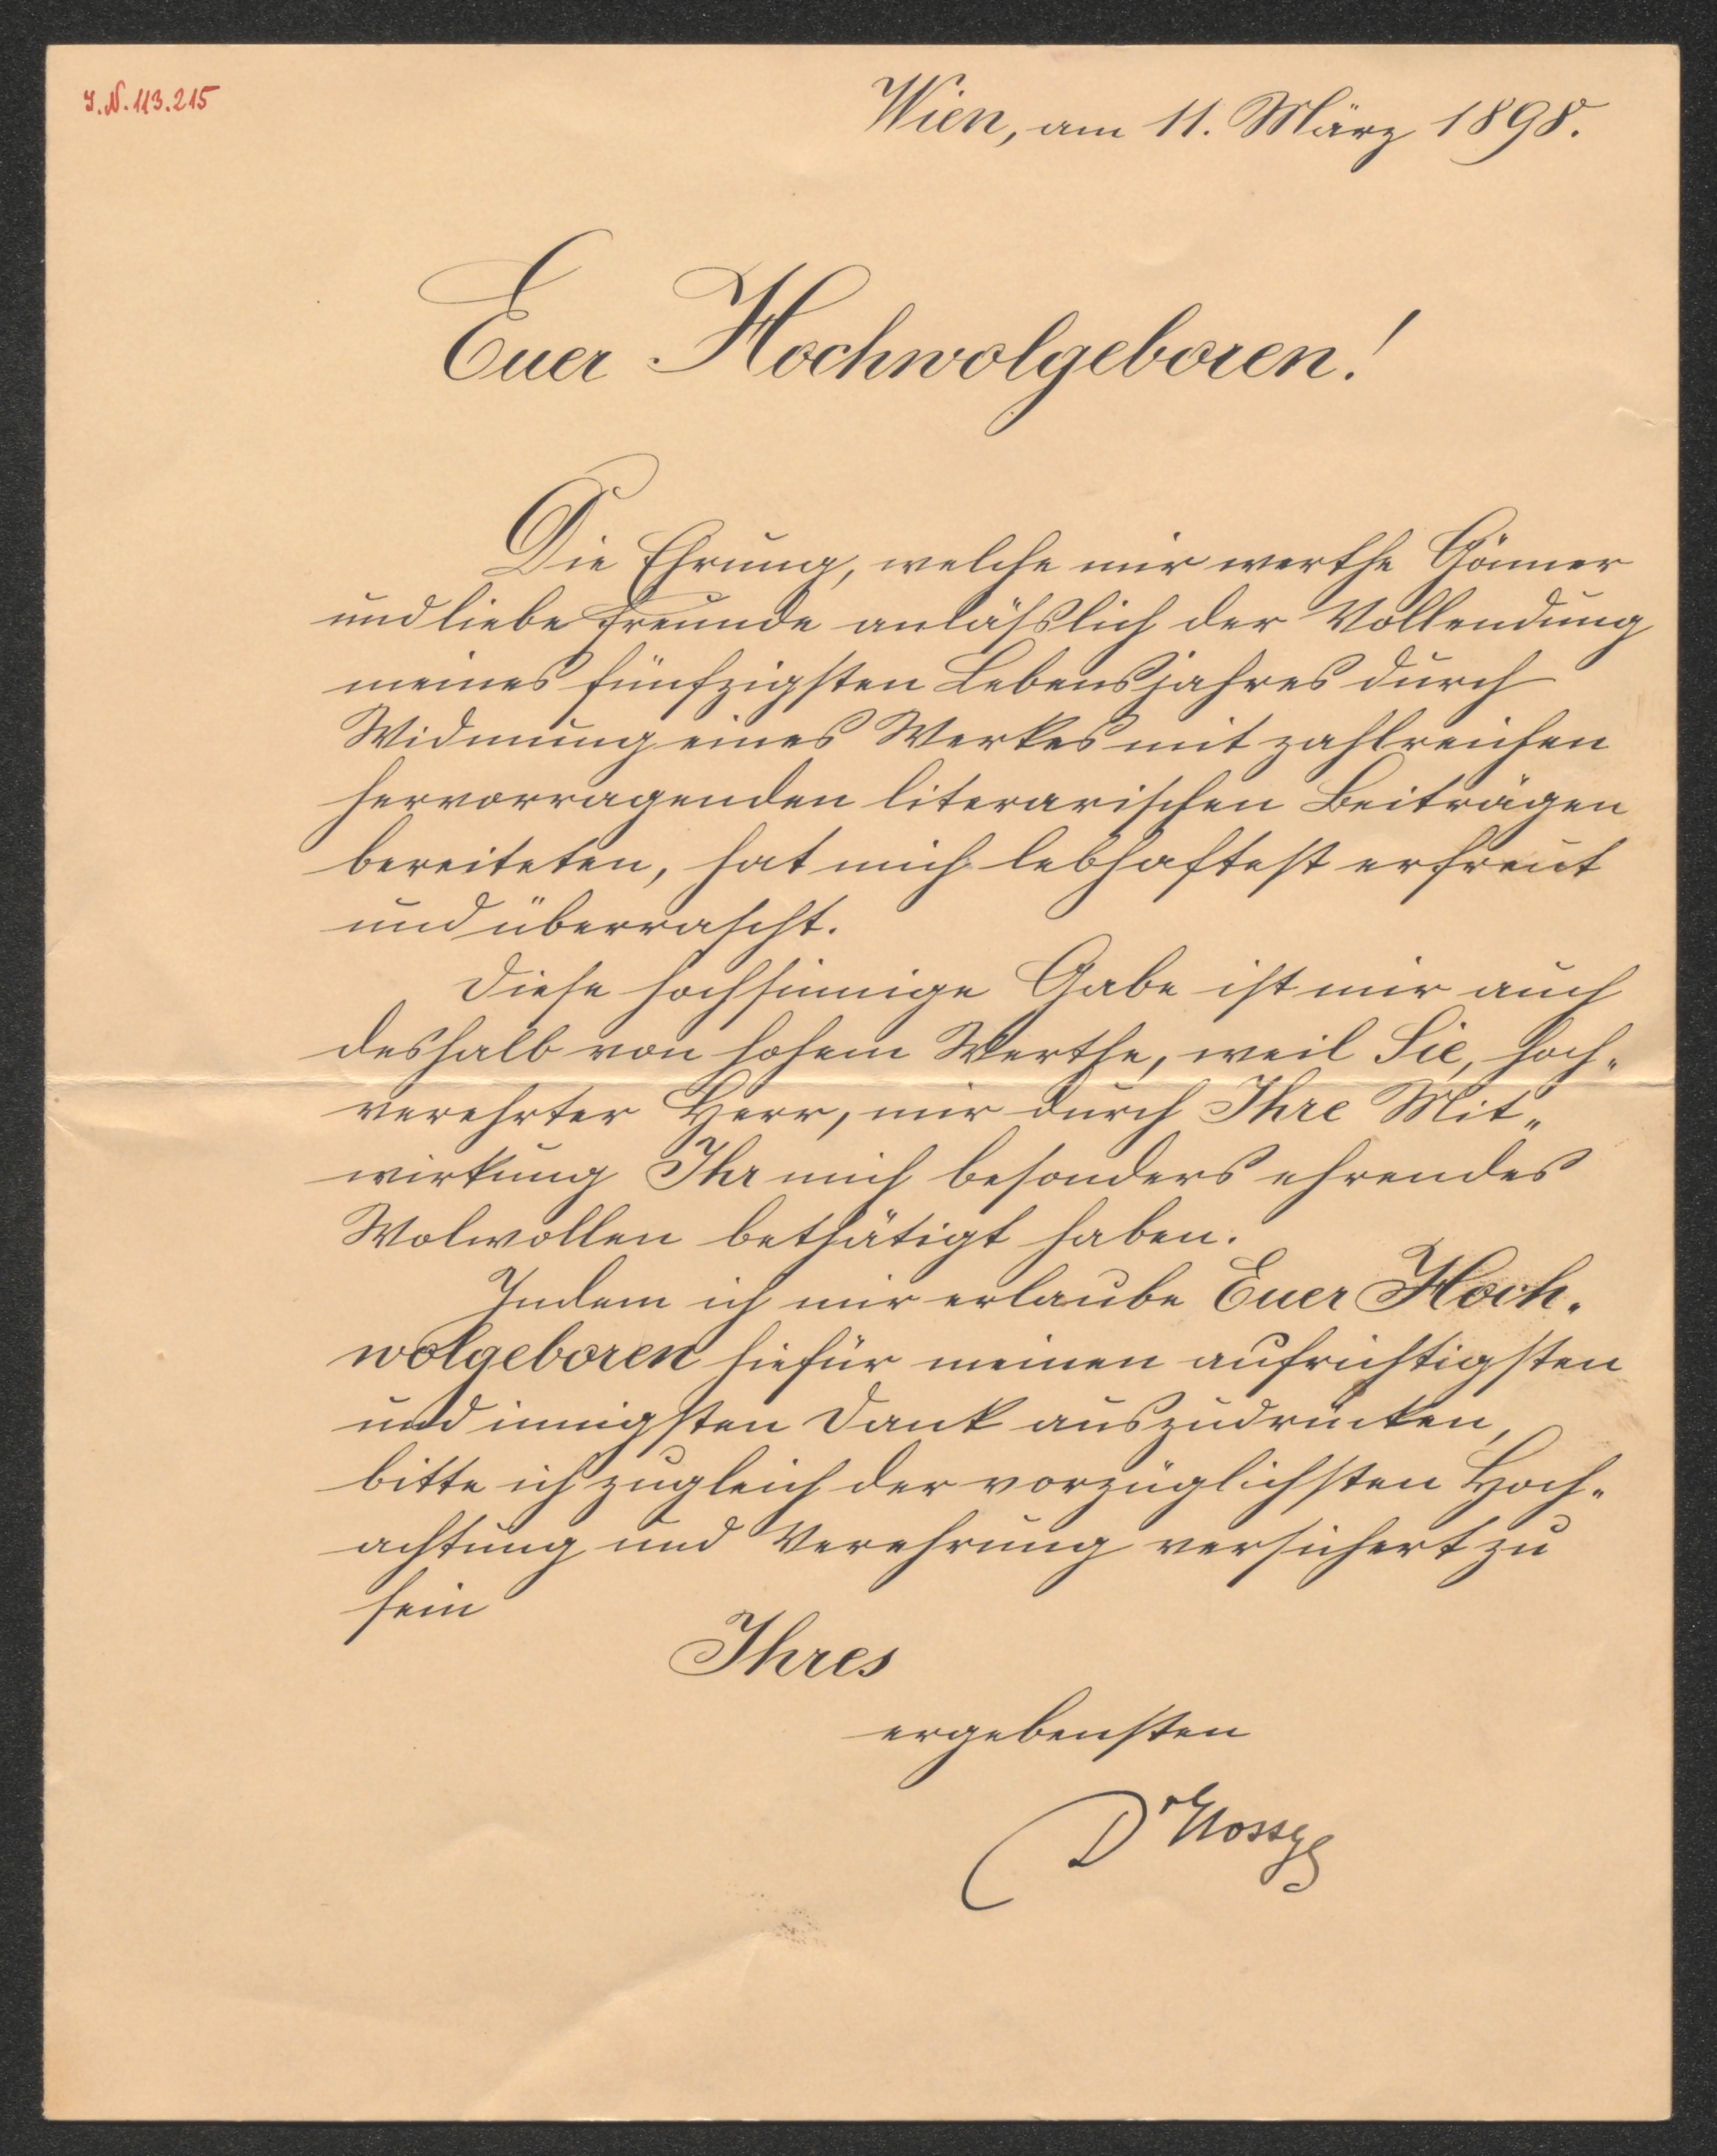 J.N.113.215
Wien, am 11. März 1898.
Euer Hochwolgeboren!
Die Ehrung, welche mir werthe Gönner
und liebe Freunde anläßlich der Vollendung
meines fünfzigsten Lebensjahres durch
Widmung eines Werkes mit zahlreichen
hervorragenden literarischen Beiträgen
bereiteten, hat mich lebhaftest erfreut
und überrascht.
Diese hochsinnige Gabe ist mir auch
deshalb von hohem Werthe, weil Sie, hoch„
verehrter Herr, mir durch Ihre Mit„
wirkung Ihr mich besonders ehrendes
Wolwollen bethätigt haben.
Indem ich mir erlaube Euer Hoch„
wolgeboren hiefür meinen aufrichtigsten
und innigsten Dank auszudrücken,
bitte ich zugleich der vorzüglichsten Hoch„
achtung und Verehrung versichert zu
sein
Ihres
ergebensten
Dr